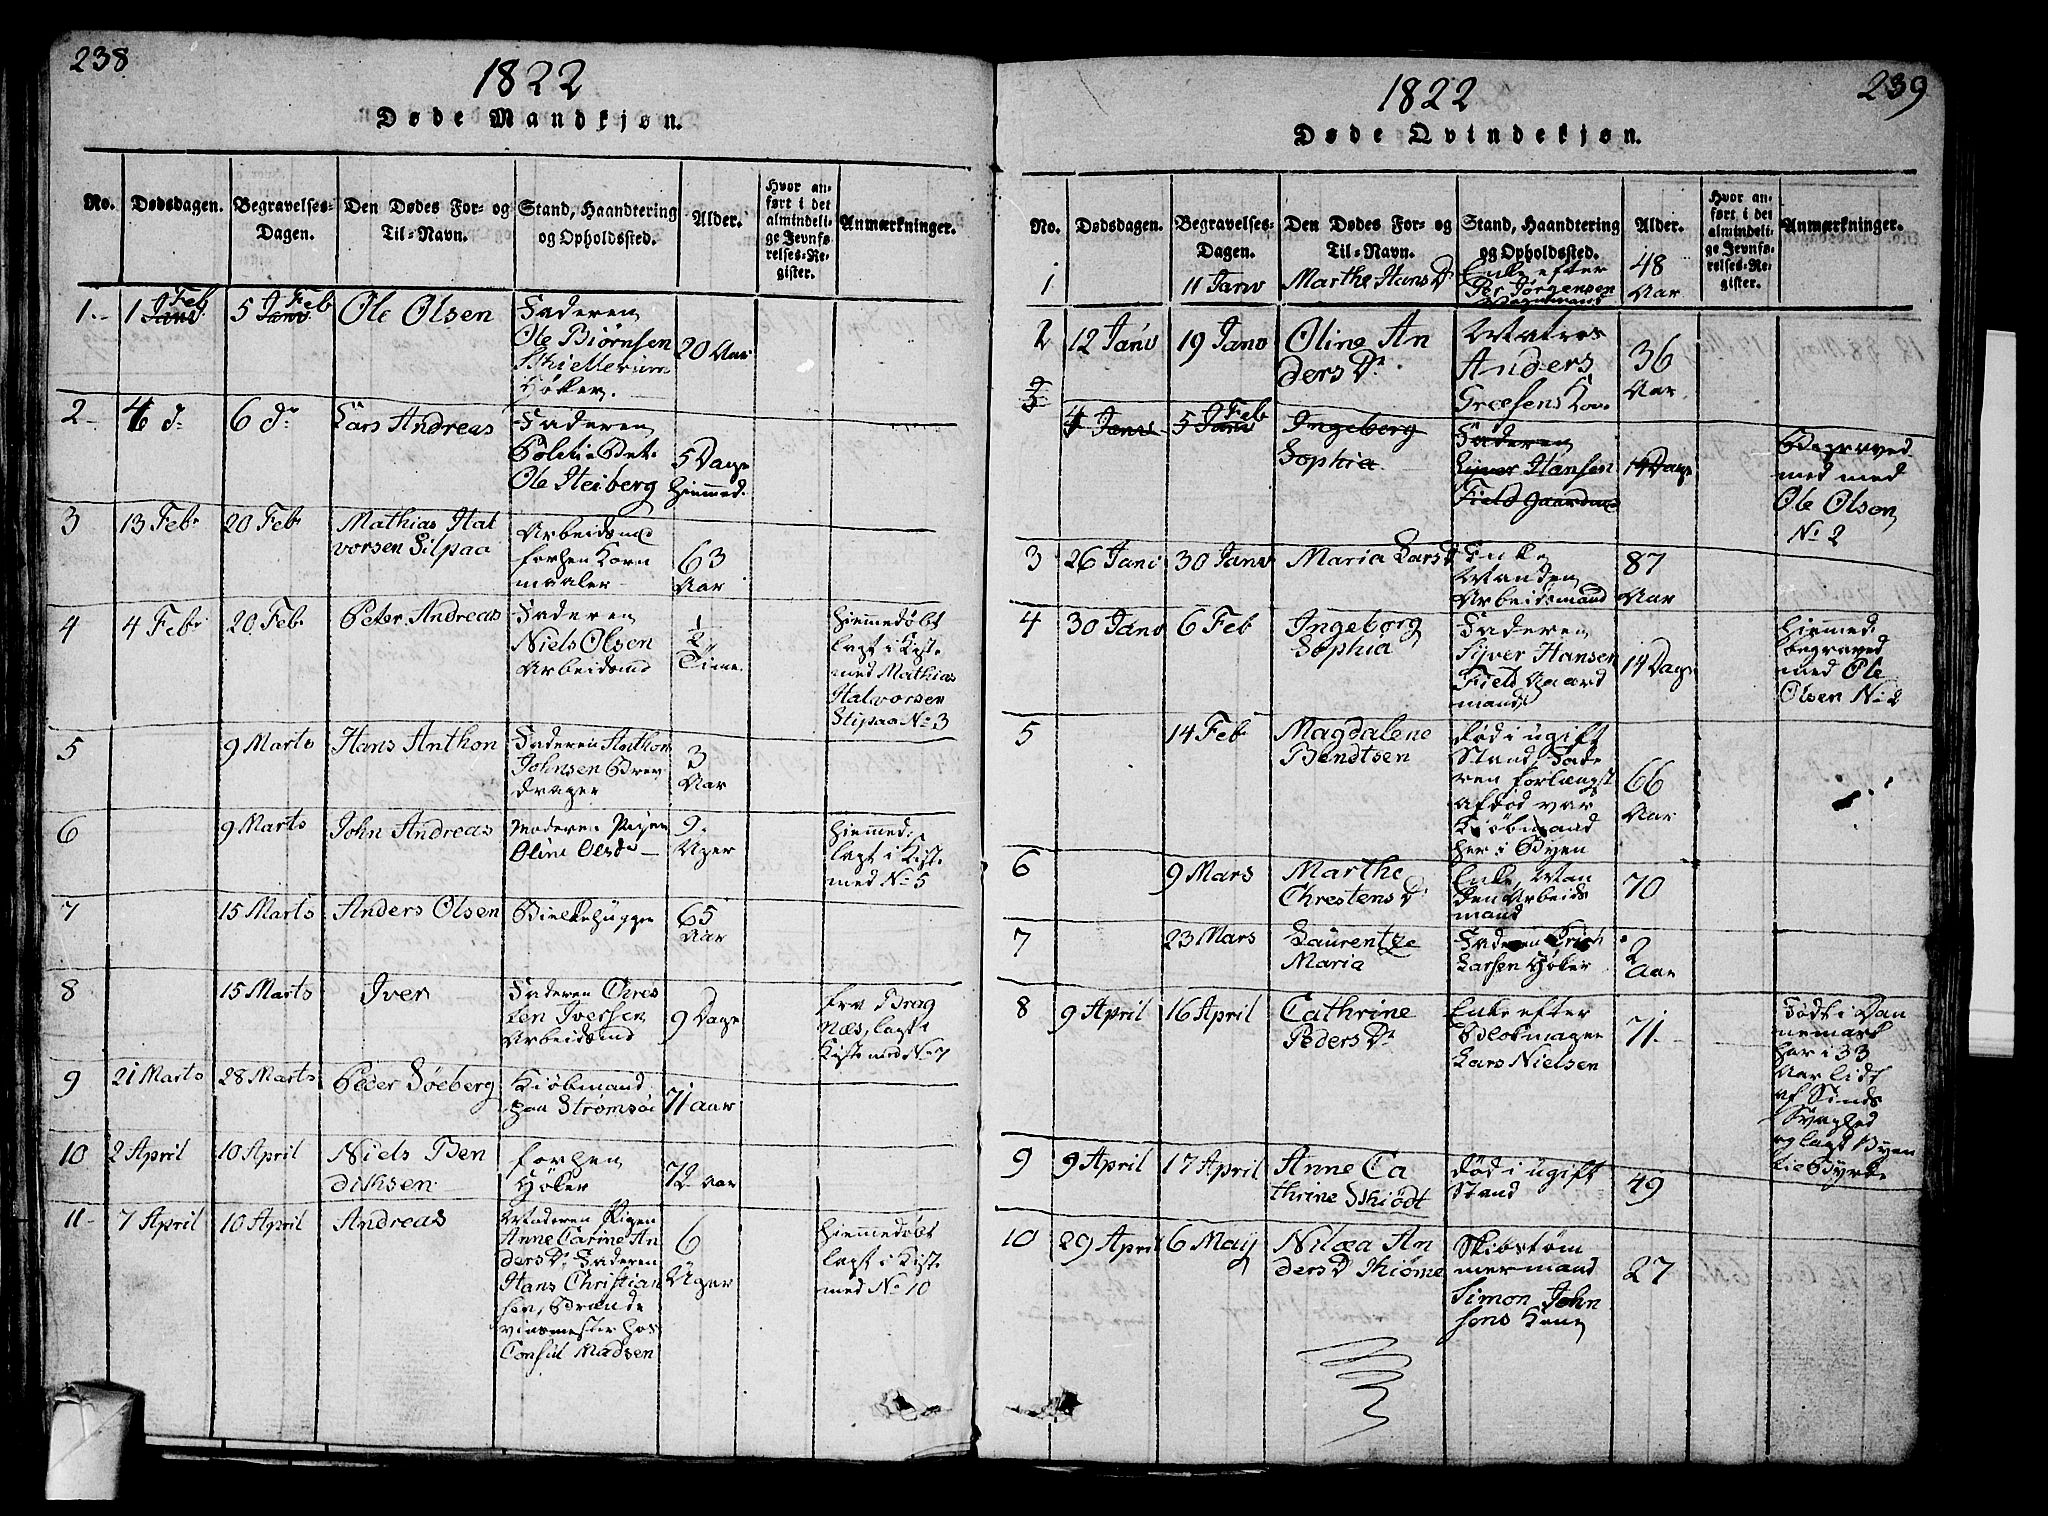 238
1822
Døde Mandkjøn.
No.
Dødsdagen.
Begravelses-
Dagen.
Den Dødes For- og
Til-Navn.
Stand, Haandtering
og Opholdssted.
Alder.
Hvor an-
ført i det
almindeli-
ge Jevnfø-
relses-Re-
gister.
Anmærkninger.
1.
1 Janv Feb
5 Janv Feb
Ole Olsen
Faderen
Ole Biørnsen
Skiellerum
Høker.
20 Aar
2
4 d.
6 d.
Lars Andreas
Faderen
Politie Bet.
Ole Heiberg
5 Dage
hiemmed.
3
13 Feb
20 Feb
Mathias Hal
vorsen Silpaa
Arbeidsmd
forhen Korn
maaler
63
Aar
4
4 Feb
20 Feb
Peter Andreas
Faderen
Niels Olsen
Arbeidsmd
1/2
Time
hiemmedøbt
lagt i Kist.
med Mathias
Halvorsen
Slipaa No 3
5
9 Marts
Hans Anthon
Faderen Anthon
Johnsen Brev
drager
3
Aar
6
9 Marts
John Andreas
Moderen Pigen
Oline Olsd.
9
Uger
hiemmed.
lagt i Kist.
med No 5
7
15 Marts
Anders Olsen
Bielkehugger
65
Aar
8
15 Marts
Iver
Faderen Chres
ten Iversen
Arbeidsmd
9 Dage
fra Brag
næs, lagt i
Kist med No 7
9
21 Marts
28 Marts
Peder Søeberg
Kiøbmand
paa Strømsøe
71 Aar
10
2 April
10 April
Niels Ben
dihsen
forhen
Høker
72 Aar
11
7 April
10 April
Andreas
Moderen Pigen
Anne Carine An
ders Dr, Faderen
Hans Christian
sen, Brænde
viinsmester hos
Consul Madsen
6
Uger
hiemmedøbt
lagt i Kist.
med No 10
239
1822
Døde Qvindekjøn.
No.
Dødsdagen.
Begravelses-
Dagen.
Den Dødes For- og
Til-Navn.
Stand, Haandtering
og Opholdssted.
Alder.
Hvor an-
ført i det
almindeli-
ge Jevnfø-
relses-Re-
gister.
Anmærkninger.
1
11 Janv
Marthe Hans Dr
Enke efter
Per Jørgensen
Vognmand
48
Aar
2
12 Janv
19 Janv
Oline An
ders Dr
Matros
Anders
Græsens Kone
36
Aar
3
4 Janv
5 Janv Feb
Ingeborg
Sophia
Faderen
Sijver Hansen
Field Gaardmd
14 Dage
Begraved
med med
Ole Olsen
No 2
3
26 Janv
30 Janv
Maria Lars Dr
Enke
Manden
Arbeidsmand
87
Aar
4
30 Janv
6 Feb
Ingeborg
Sophia
Faderen
Sijver Hansen
Field Gaard
mand
14 Dage
hiemmed.
begraved
med Ole
Olsen No 2
5
14 Feb
Magdalene
Bendtsen
død i ugift
Stand, Fade
ren forlængst
afdød var
Kiøbmand
her i Byen
66
Aar
6
9 Mars
Marthe
Chrestens Dr
Enke, Man
den Arbeids
mand
70
7
23 Mars
Laurentze
Maria
Faderen Erich
Larsen Høker
2
Aar
8
9 April
16 April
Cathrine
Peders Dr
Enke efter
Blokmager
Lars Nielsen
71
Født i Dan
nemark
har i 33
Aar lidt
af Sinds
Svaghed
og lagt Byen
til Byrde
9
9 April
17 April
Anne Ca
thrine Skiødt
død i ugift
Stand
49
10
29 April
6 Maij
Nilæa An
ders Dr Thiøme
Skibstøm
mermand
Simon John
sens Kone
27